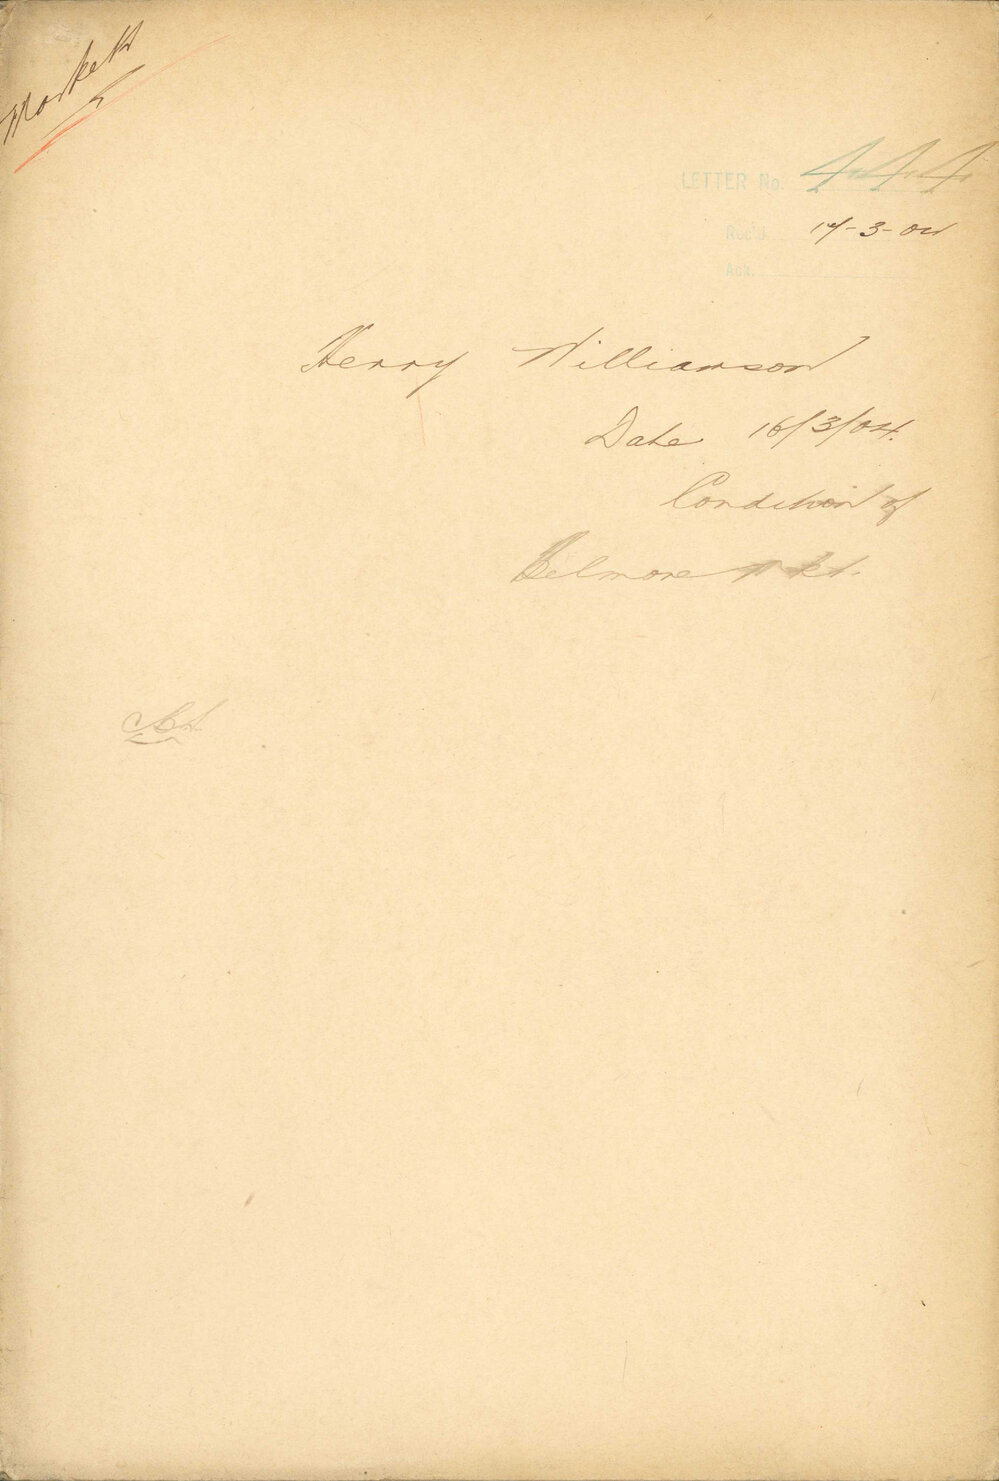 Markets
LETTER No. 444
Rec'd 17-3-04
Ack.
Henry Williamson
Date 16/3/04.
Condition of
Belmore Mkt.